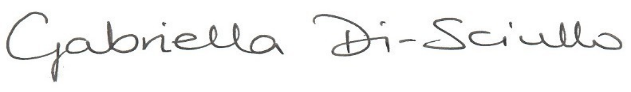 Gabriella Di-Sciullo